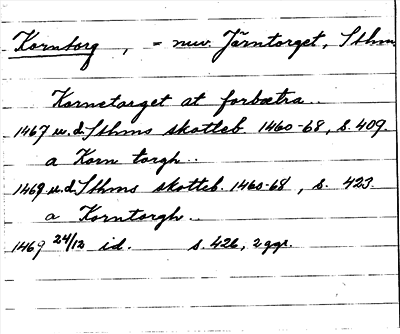 Korntorg, = nuv. Järntorget, Sthm.
Kornetorget at forbætra..
1467 u.d. Sthms skotteb. 1460-68, s. 409.
a Korn torgh..
1469 u.d. Sthms skotteb. 1460-68, s. 423.
a Korntorgh..
1469 24/12 id. s. 426, 2 ggr.